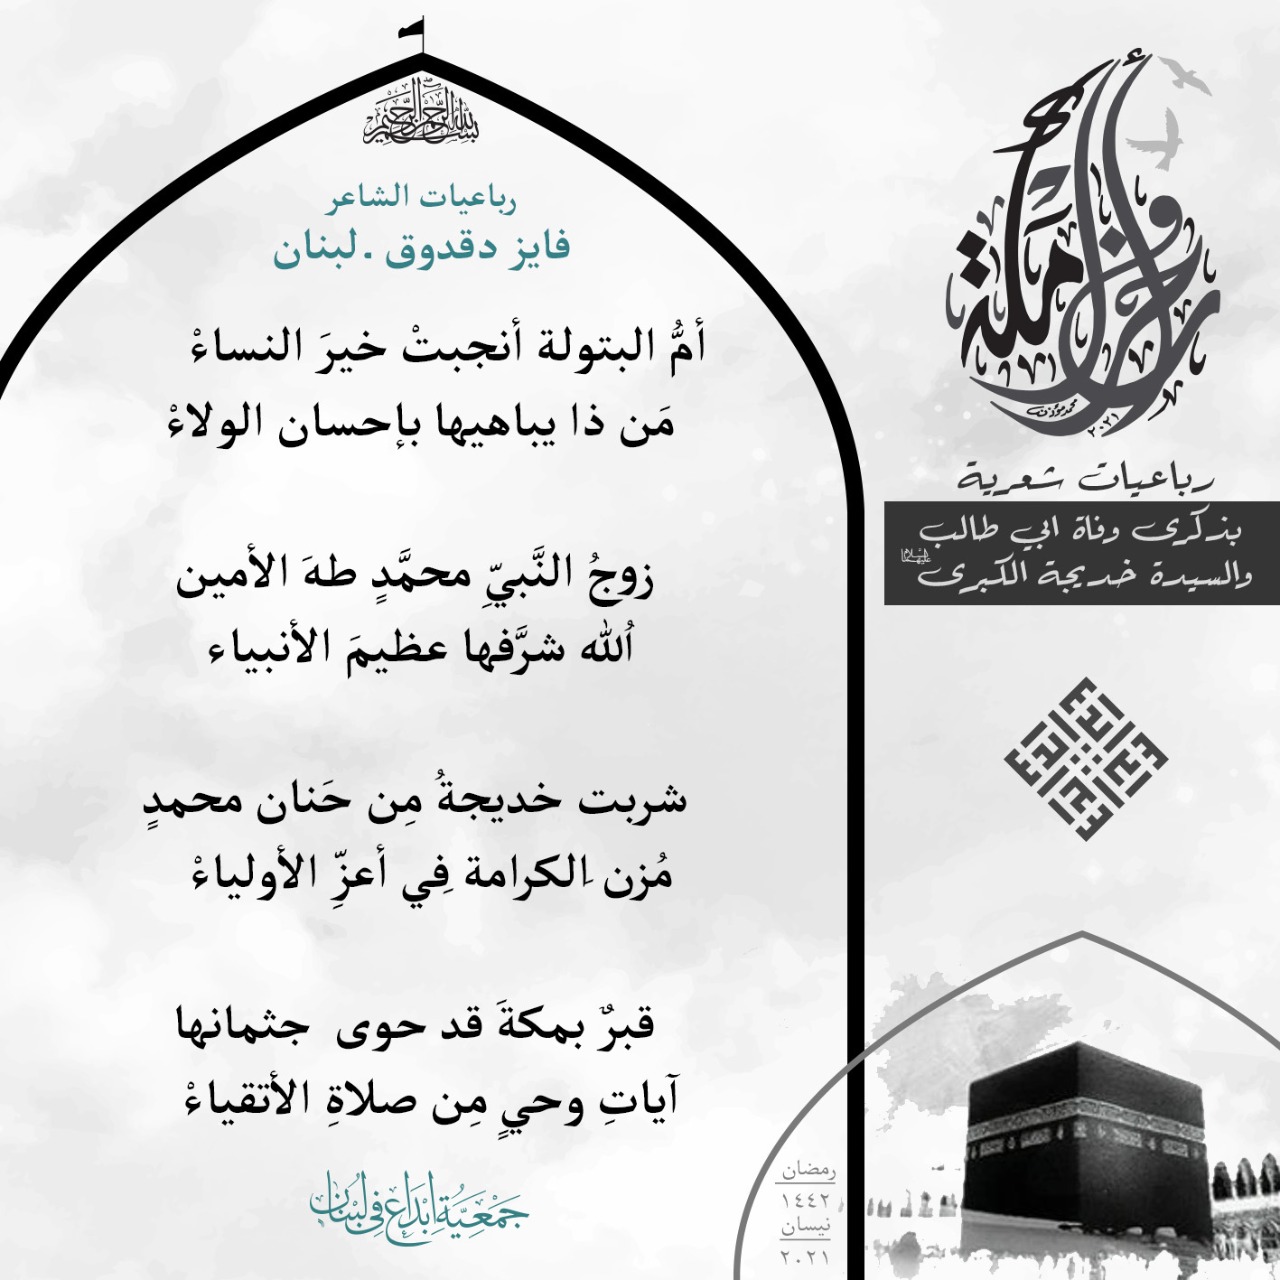 بسم الله الرحمن الرحيم
رباعيات الشاعر
فايز دقدوق ـ لبنان
أمُّ البتولة أنجبتْ خيرَ النساءْ
مَن ذا يباهيها بإحسان الولاءْ
زوجُ النَّبيِّ محمَّدٍ طهَ الأمين
اُلله شرَّفها عظيمَ الأنبياء
شربت خديجةُ مِن حَنان محمدٍ
مُزن اِلكرامة فِي أعزِّ الأولياءْ
قبرٌ بمكةَ قد حوى جثمانها
آياتِ وحيٍ مِن صلاةِ الأتقياءْ
جَمْعِيَّةُ إِبْدَاع فِي لُبْنَان
محمد مؤذن
٢٠٢١
رباعيات شعرية
بذكرى وفاة ابي طالب
والسيدة خديجة الكبرى عليهما السلام
رمضان
١٤٤٢
نيسان
٢٠٢١